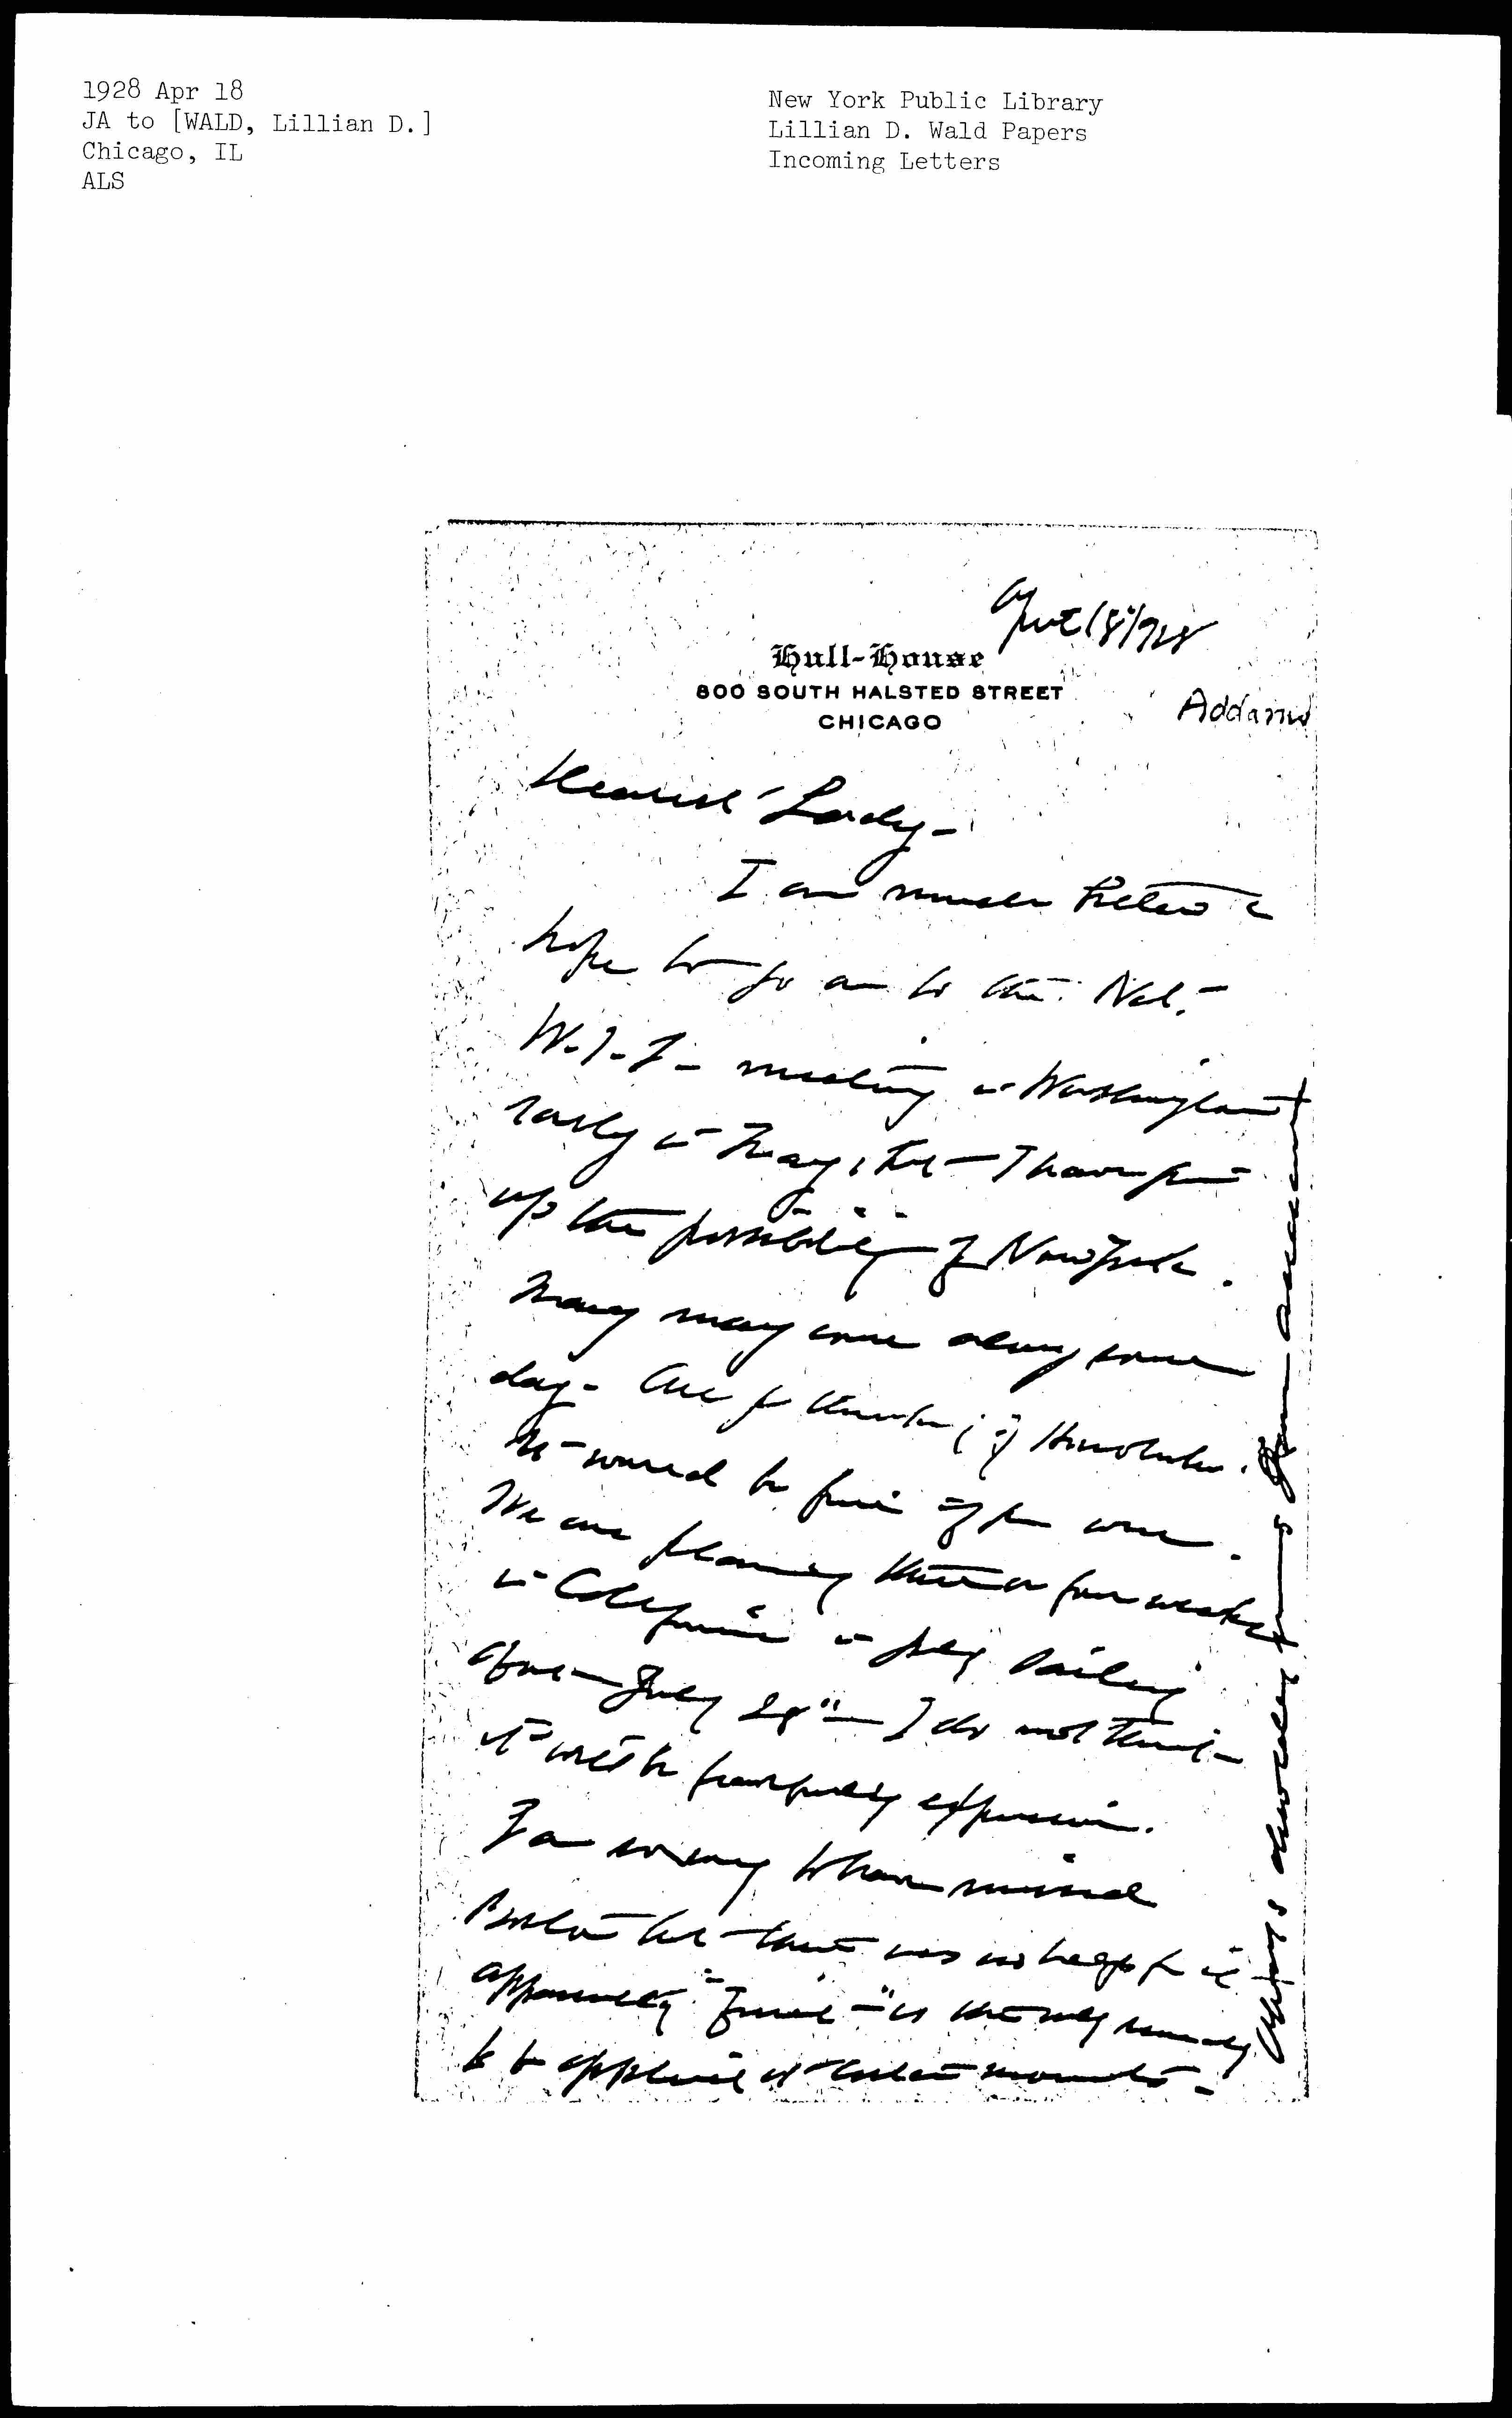 1928 Apr 18
JA to [WALD, Lillian D.]
Chicago, IL
ALS
New York Public Library
Lillian D. Wald Papers
Incoming Letters
April 18" 1928
Hull-House
800 SOUTH HALSTED STREET
CHICAGO
Addams
Dearest Lady -
I am much better &
hope to go on to the Nat.
W.I.L. meeting in Washington
early in May, but I have given
up the possibility of New York.
Mary may come along some
day - Are you thinking of Honolulu.
It would be fine if you were.
We are planning three or four weeks
in California in July sailing
from July 28" - I do not think
it will be fearfully expensive.
I am sorry to have missed
but there was no help for it
apparently "quiet" is the only remedy
to be applied at certain moments -
Always devotedly yours Jane Addams